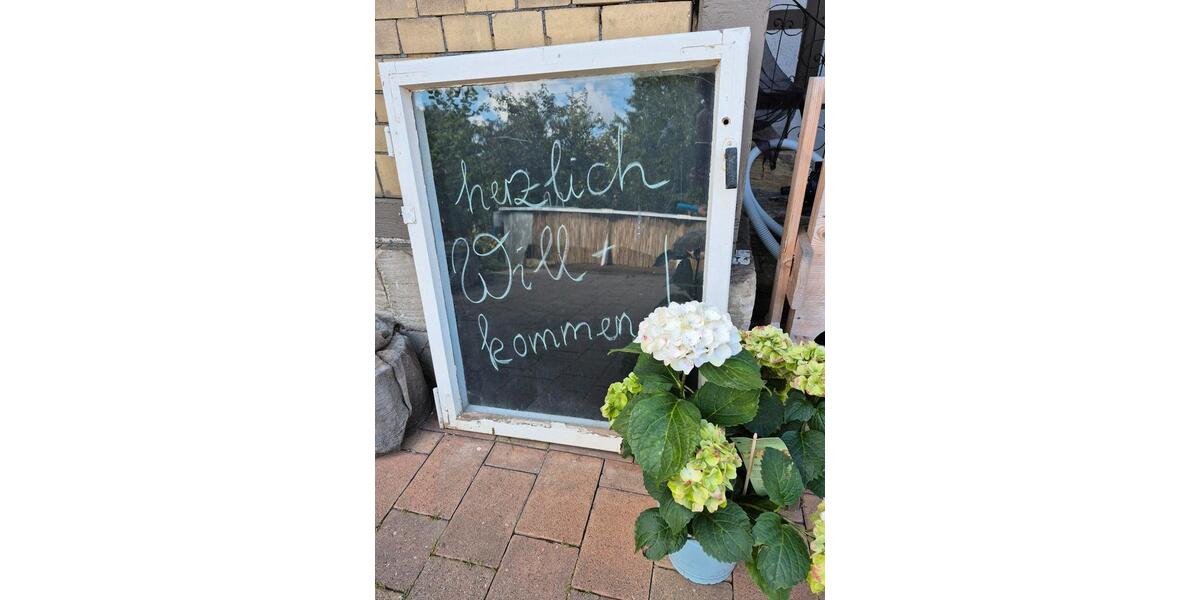 herzlich
Will +
kommen !